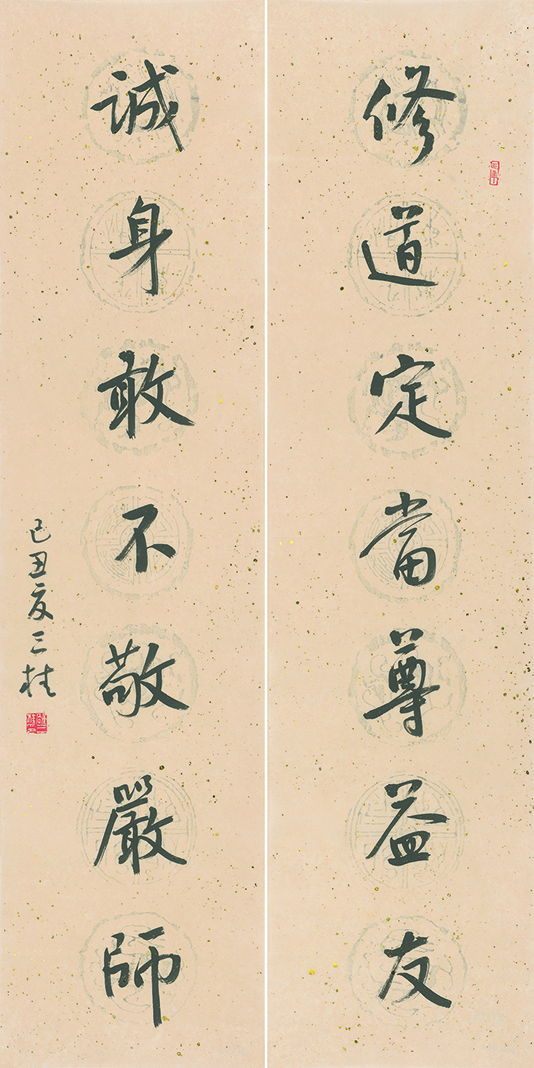 修道定當尊益友
誠身敢不敬嚴師
己丑夏三桂